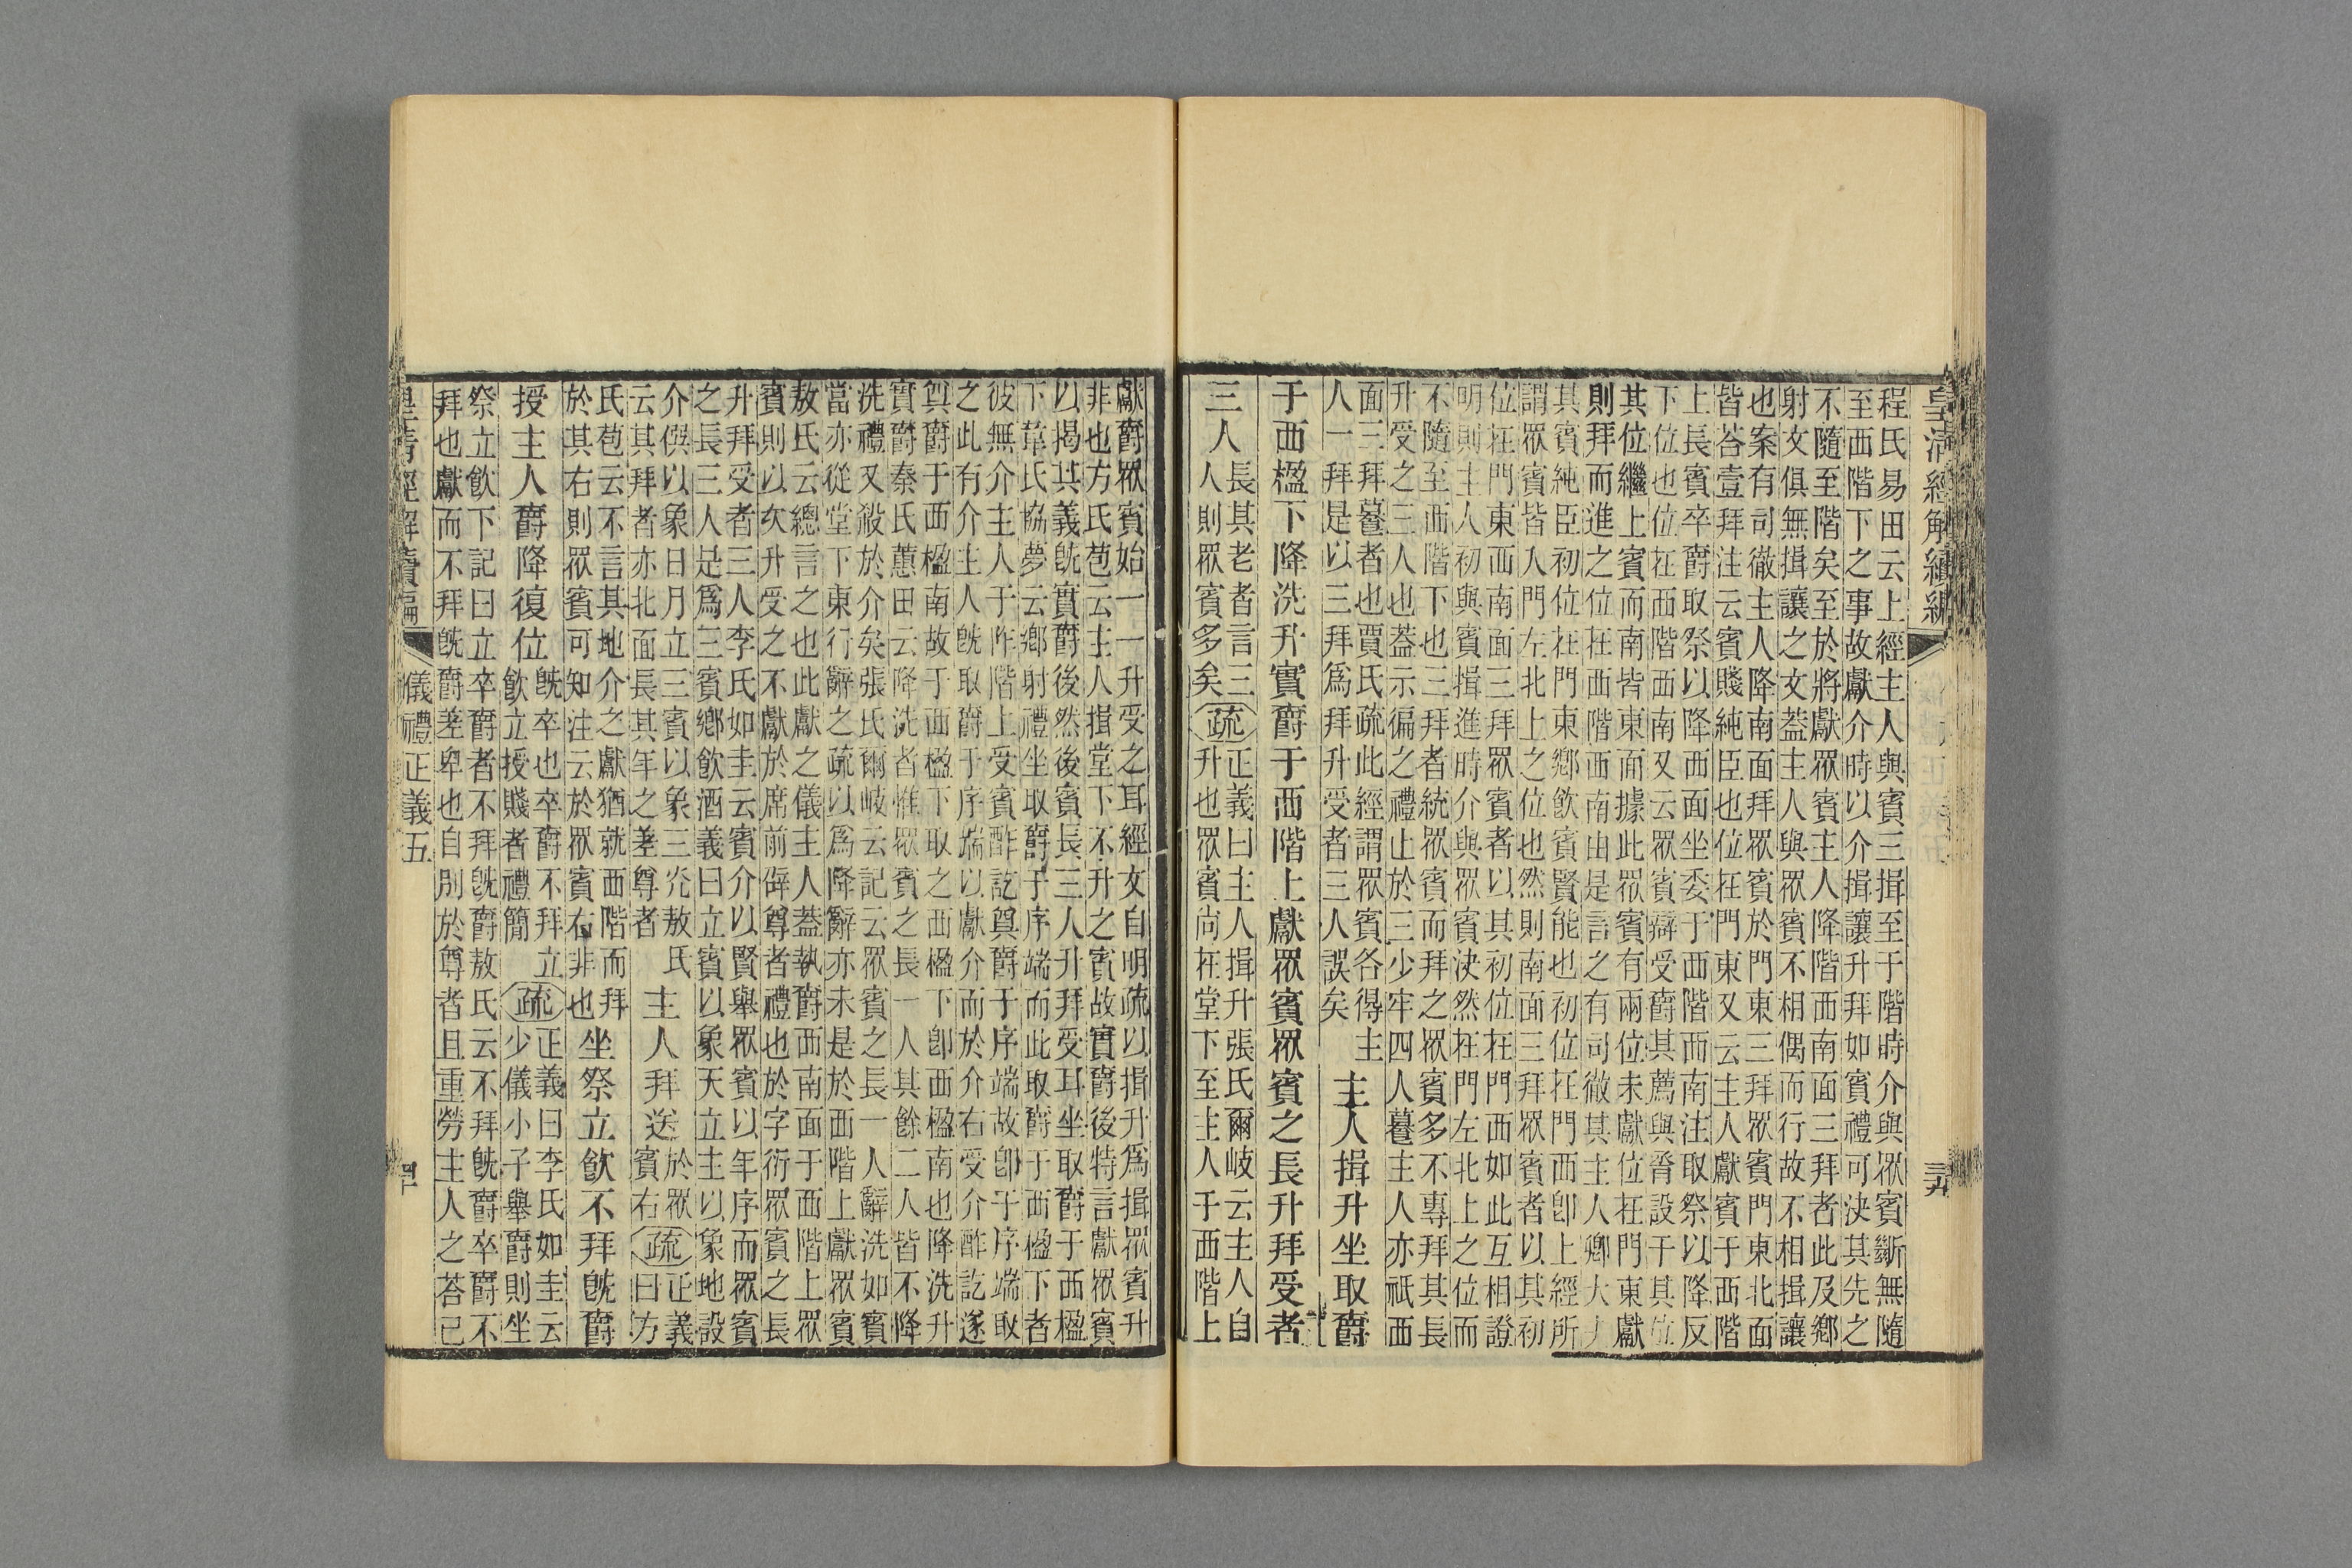 皇清經解續編
程氏易田云上經主人與賓三揖至于階時介與眾賓斷無隨
至西階下之事故獻介時以介揖讓升拜如賓禮可決其先之
不隨至階矣至於將獻眾賓主人降階西南面三拜者此及鄉
射文俱無揖讓之文蓋主人與眾賓不相偶而行故不相揖讓
也案有司徹主人降南面拜眾賓於門東三拜眾賓門東北面
皆荅壹拜注云賓賤純臣也位在門東又云主人獻賓于西階
上長賓卒爵取祭以降西面坐委于西階西南注取祭以降反
下位也位在西階西南又云眾賓辯受爵其薦與脀設于其位
其位繼上賓而南皆東面據此眾賓有兩位未獻位在門東獻
則拜而進之位在西階西南由是言之有司徹其主人卿大夫
其賓純臣初位在門東鄉飲賓賢能也初位在門西卽上經所
謂眾賓皆入門左北上之位也然則南面三拜眾賓者以其初
位在門東西南面三拜眾賓者以其初位在門西如此互相證
明則主人初與賓揖進時介與眾賓決然在門左北上之位而
不隨至西階下也三拜者統眾賓而拜之眾賓多不專拜其長
升受之三人也蓋示徧之禮止於三少牢四人䉵主人亦祇西
面三拜䉵者也賈氏疏此經謂眾賓各得主
人一拜是以三拜爲拜升受者三人誤矣
主人揖升坐取爵
于西楹下降洗升實爵于西階上獻眾賓眾賓之長升拜受者
三人
長其老者言三
人則眾賓多矣
疏
正義曰主人揖升張氏爾岐云主人自
升也眾賓尚在堂下至主人于西階上
獻爵眾賓始一一升受之耳經文自明疏以揖升爲揖眾賓升
非也方氏苞云主人揖堂下不升之賓故實爵後特言獻眾賓
以揭其義旣實爵後然後賓長三人升拜受耳坐取爵于西楹
下草氏協夢云鄉射禮坐取爵于序端而此取爵于西楹下者
彼無介主人于阼階上受賓酢訖奠爵于序端故卽于序端取
之此有介主人旣取爵于序端以獻介而於介右受介酢訖遂
奠爵于西楹南故于西楹下取之西楹下卽西楹南也降洗升
實爵秦氏蕙田云降洗者惟眾賓之長一人其餘二人皆不降
洗禮又殺於介矣張氏爾岐云記云眾賓之長一人辭洗如賓
當亦從堂下東行辭之疏以爲降辭亦未是於西階上獻眾賓
敖氏云總言之也此獻之儀主人蓋執爵西南面于西階上眾
賓則以次升受之不獻於席前辟尊者禮也於字衍眾賓之長
升拜受者三人李氏如圭云賓介以賢舉眾賓以年序而眾賓
之長三人是爲三賓鄉飲酒義曰立賓以象天立主以象地設
介僎以象日月立三賓以象三光敖氏
云其拜者亦北面長其年之差尊者
主人拜送
於眾
賓右
疏
正義
曰方
氏苞云不言其地介之獻猶就西階而拜
於其右則眾賓可知注云於眾賓右非也
坐祭立飲不拜旣爵
授主人爵降復位
旣卒也卒爵不拜立
飲立授賤者禮簡
疏
正義曰李氏如圭云
少儀小子舉爵則坐
祭立飲下記曰立卒爵者不拜旣爵敖氏云不拜旣爵卒爵不
拜也獻而不拜旣爵差卑也自別於尊者且重勞主人之荅己
皇清經解續編
儀禮正義五